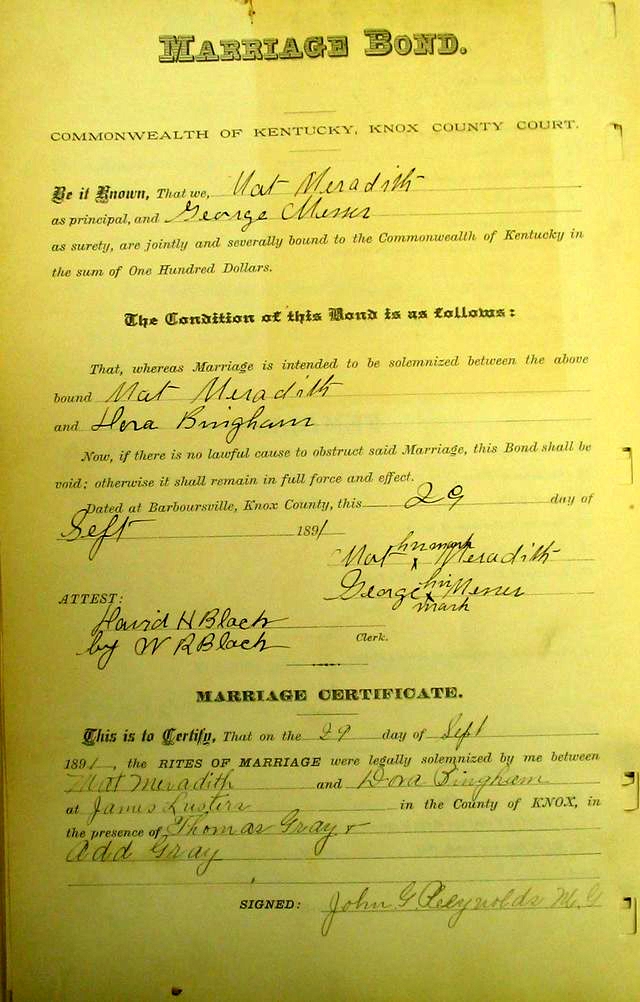 MARRIAGE BOND.
COMMONWEALTH OF KENTUCKY, KNOX COUNTY COURT.
Be it Known, That we, Mat Meradith
as principal, and George Messer
as surety, are jointly and severally bound to the Commonwealth of Kentucky in
the sum of One Hundred Dollars.
The Condition of this Bond is as follows:
That, whereas Marriage is intended to be solemnized between the above
bound Mat Meradith
and Dora Bingham
Now, if there is no lawful cause to obstruct said Marriage, this Bond shall be
void; otherwise it shall remain in full force and effect.
Dated at Barboursville, Knox County, this 29 day of
Sept 1891
Mat his x mark Meradith
George his x mark Messer
ATTEST:
David H Black
by W R Black Clerk.
MARRIAGE CERTIFICATE.
This is to Certify, That on the 29 day of Sept
1891, the RITES OF MARRIAGE were legally solemnized by me between
Mat Meradith and Dora Bingham
at James Lusters in the County of KNOX, in
the presence of Thomas Gray +
Add Gray
SIGNED: John G Reynolds M. G